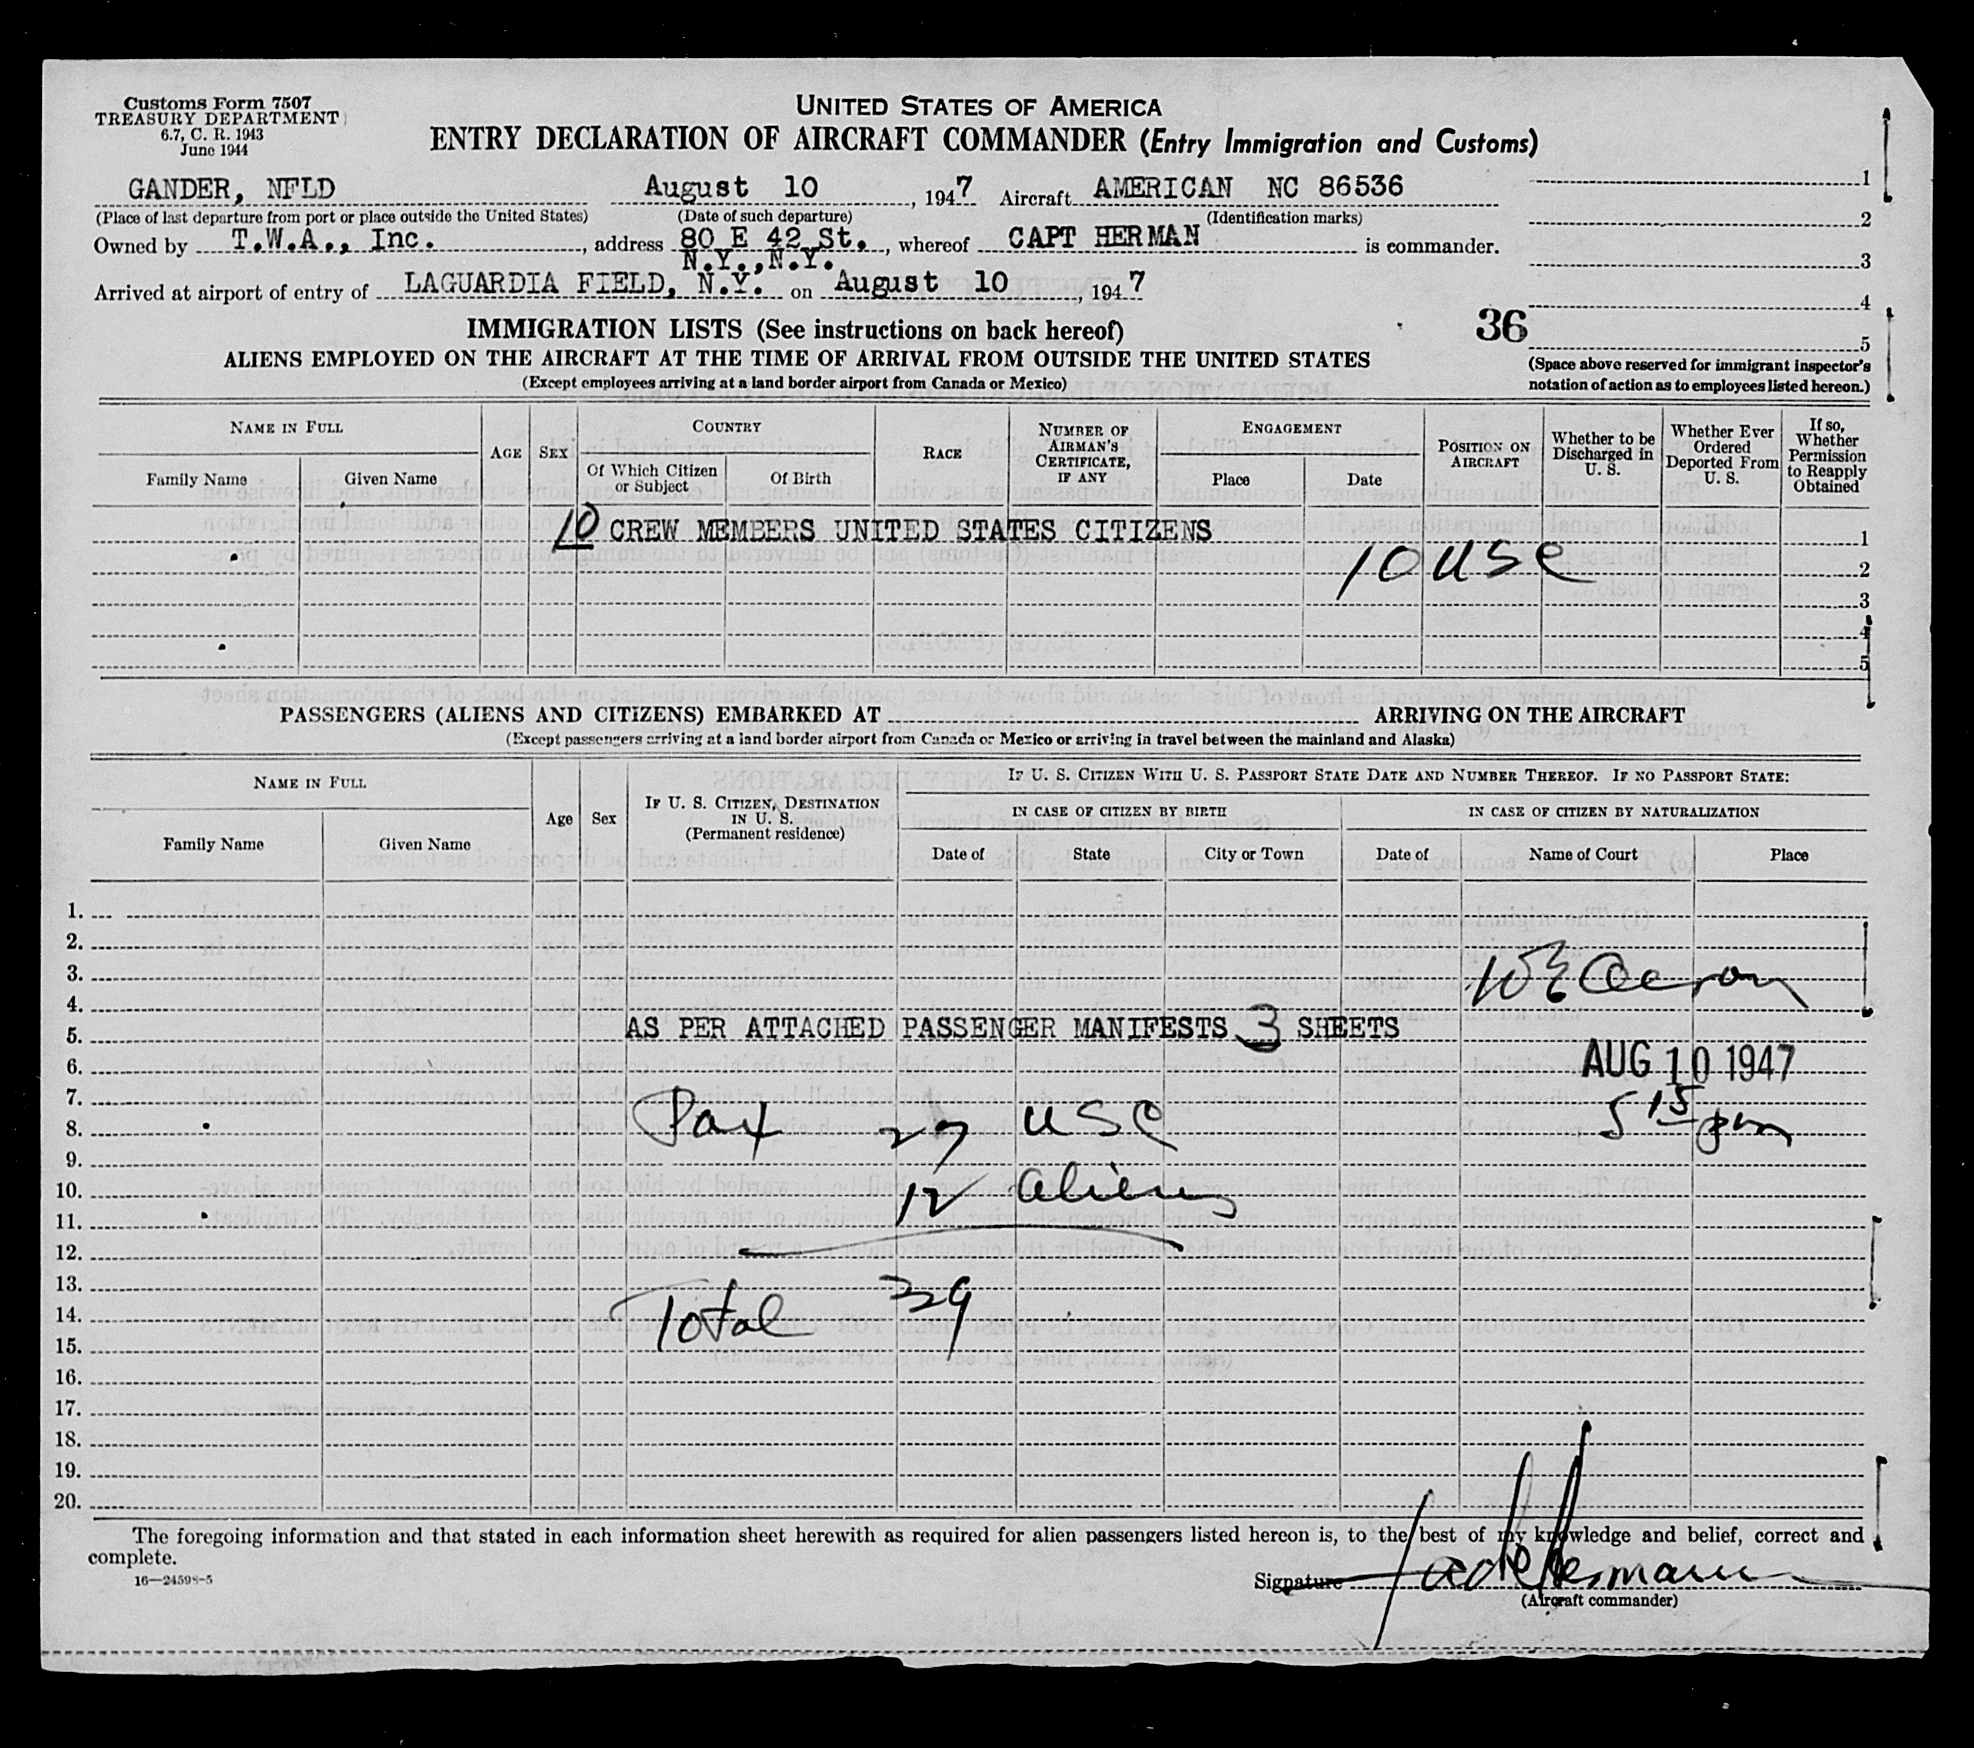 Customs Form 7507
TREASURY DEPARTMENT
6.7, C. R. 1943
June 1944
UNITED STATES OF AMERICA
ENTRY DECLARATION OF AIRCRAFT COMMANDER (Entry Immigration and Customs)
GANDER, NFLD August 10, 1947 Aircraft AMERICAN NC 86536 1
(Place of last departure from port or place outside the United States) (Date of such departure) (Identification marks) 2
Owned by T.W.A., Inc., address 80 E 42 St., whereof CAPT HERMAN is commander.
N.Y.,N.Y. 3
Arrived at airport of entry of LAGUARDIA FIELD, N.Y. on August 10, 1947 4
IMMIGRATION LISTS (See instructions on back hereof) 36 5
ALIENS EMPLOYED ON THE AIRCRAFT AT THE TIME OF ARRIVAL FROM OUTSIDE THE UNITED STATES
(Except employees arriving at a land border airport from Canada or Mexico)
(Space above reserved for immigrant inspector's
notation of action as to employees listed hereon.)
NAME IN FULL
Family Name
Given Name
AGE
SEX
COUNTRY
Of Which Citizen
or Subject
Of Birth
RACE
NUMBER OF
AIRMAN'S
CERTIFICATE,
IF ANY
ENGAGEMENT
Place
Date
POSITION ON
AIRCRAFT
Whether to be
Discharged in
U. S.
Whether Ever
Ordered
Deported From
U. S.
If so,
Whether
Permission
to Reapply
Obtained
10 CREW MEMBERS UNITED STATES CITIZENS 1
10 USC 2
3
4
5
PASSENGERS (ALIENS AND CITIZENS) EMBARKED AT ARRIVING ON THE AIRCRAFT
(Except passengers arriving at a land border airport from Canada or Mexico or arriving in travel between the mainland and Alaska)
NAME IN FULL
Family Name
Given Name
Age
Sex
IF U. S. CITIZEN, DESTINATION
IN U. S.
(Permanent residence)
IF U. S. CITIZEN WITH U. S. PASSPORT STATE DATE AND NUMBER THEREOF. IF NO PASSPORT STATE:
IN CASE OF CITIZEN BY BIRTH
Date of
State
City or Town
IN CASE OF CITIZEN BY NATURALIZATION
Date of
Name of Court
Place
1.
2.
3.
4.
5. AS PER ATTACHED PASSENGER MANIFESTS 3 SHEETS
6. AUG 10 1947
7. 5 15 pm
8. Pax 27 USC
9.
10. 12 aliens
11.
12.
13.
14. Total 39
15.
16.
17.
18.
19.
20.
The foregoing information and that stated in each information sheet herewith as required for alien passengers listed hereon is, to the best of my knowledge and belief, correct and
complete.
16—24598-5
Signature Jack Hermann
(Aircraft commander)